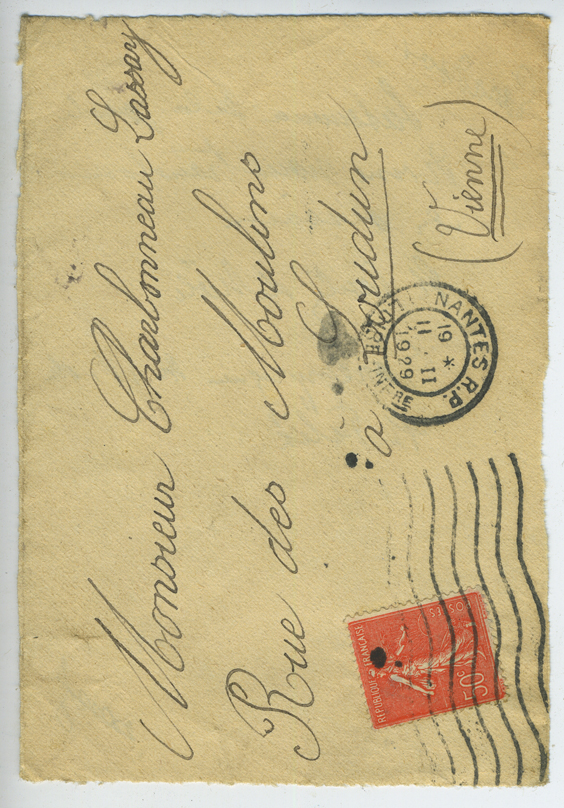 Monsieur Charbonneau Lassay
Rue des Moulins
à Loudun
(Vienne)
NANTES R.P.
19 *
11 · 11
1929
REPUBLIQUE FRANÇAISE
POSTES
50c